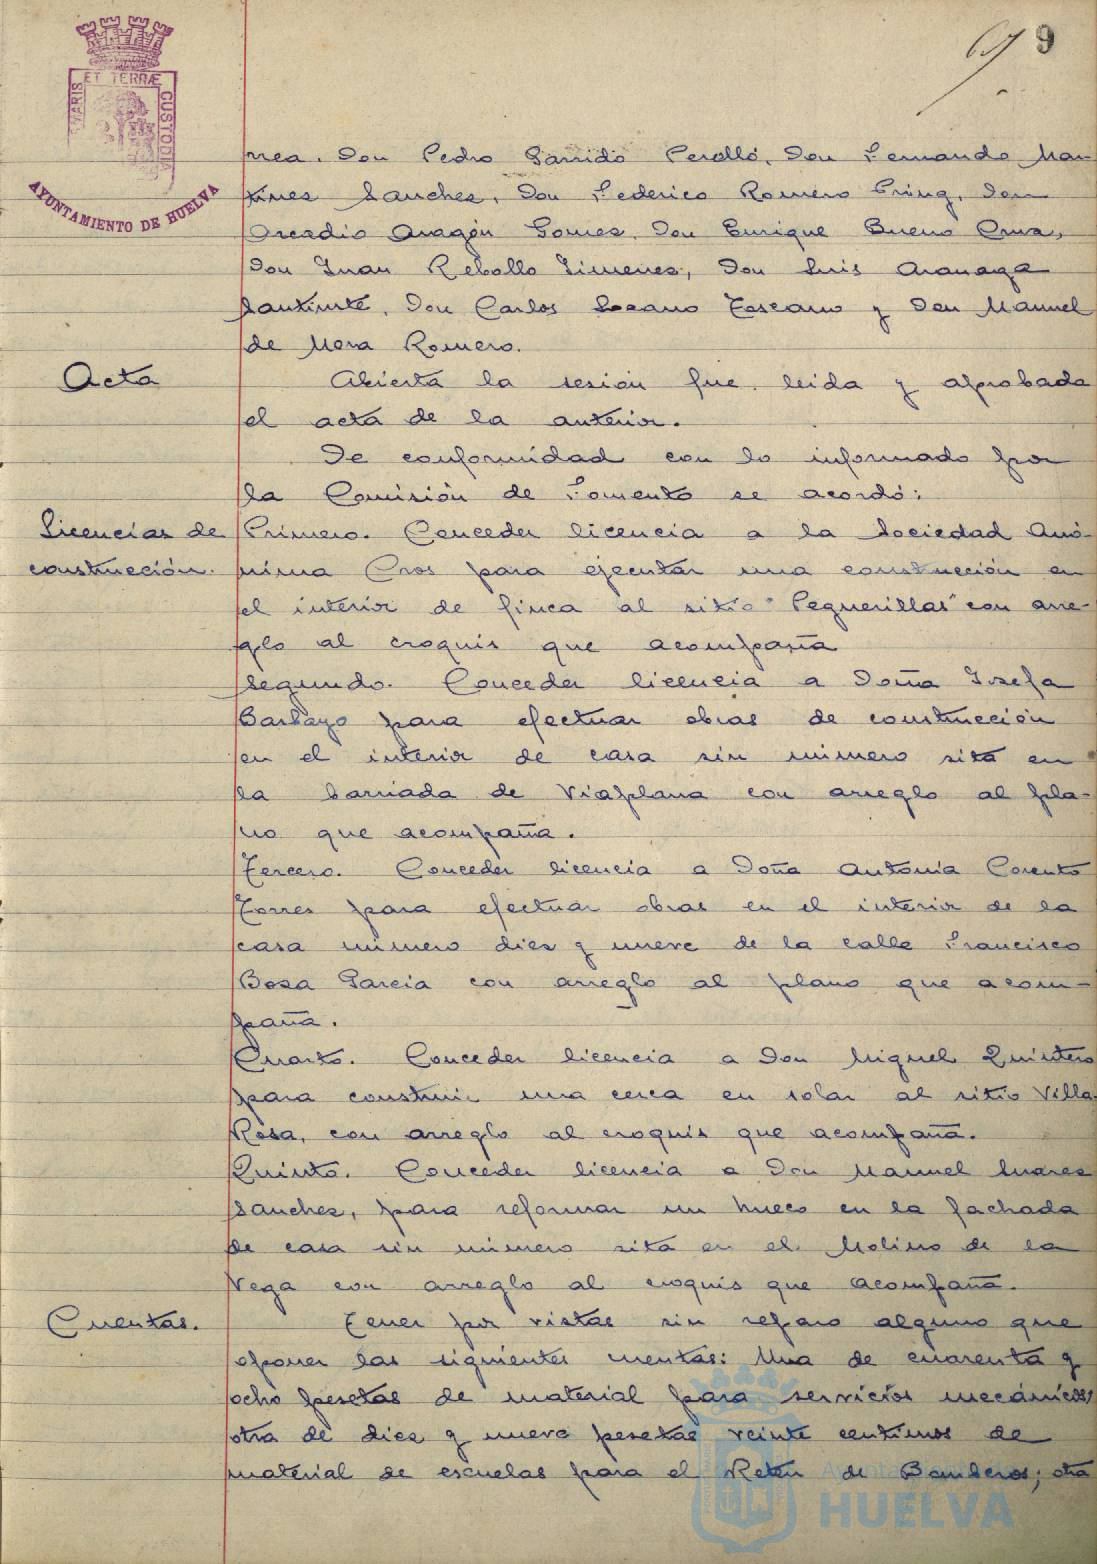 9
MARIS ET TERRÆ CUSTODI
AYUNTAMIENTO DE HUELVA
rrea, Don Pedro Garrido Perelló, Don Fernando Mar-
tines Sanches, Don Federico Romero Pring, Don
Arcadio Aragón Gomes, Don Enrique Bueno Cruz,
Don Juan Rebollo Jimenes, Don Luis Aranaga
Don Carlos Lozano Toscano y Don Manuel
de Mora Romero.
Acta
Abierta la sesión fue leida y aprobada
el acta de la anterior.
De conformidad con lo informado por
la Comisión de Fomento se acordó:
Licencias de
construcción.
Primero. Conceder licencia a la Sociedad Anó-
nima Cros para ejecutar una construcción en
el interior de finca al sitio "Peguerillas" con arre-
glo al croquis que acompaña
Segundo. Conceder licencia a Doña Josefa
Barbayo para efectuar obras de construcción
en el interior de casa sin número sita en
la barriada de Viaplana con arreglo al pla-
no que acompaña.
Tercero. Conceder licencia a Doña Antonia Corento
Torres para efectuar obras en el interior de la
casa número dies y nueve de la calle Francisco
Bosa Garcia con arreglo al plano que acom-
paña.
Cuarto. Conceder licencia a Don Miguel Quintero
para construir una cerca en solar al sitio Villa
Rosa, con arreglo al croquis que acompaña.
Quinto. Conceder licencia a Don Manuel Suares
Sanches, para reformar un hueco en la fachada
de casa sin número sita en el Molino de la
Vega con arreglo al croquis que acompaña.
Cuentas.
Tener por vistas sin reparo alguno que
oponer las siguientes cuentas: Una de cuarenta y
ocho pesetas de material para servicios mecánicos;
otra de dies y nueve pesetas veinte centimos de
material de escuelas para el Retén de Bomberos; otra
Ayuntamiento de
HUELVA